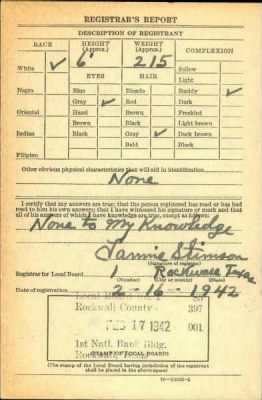 REGISTRAR'S REPORT
DESCRIPTION OF REGISTRANT
RACE HEIGHT (Approx.) WEIGHT (Approx.) COMPLEXION
White ✓ 6' 215 Sallow
EYES HAIR Light
Negro Blue Blonde Ruddy ✓
Gray ✓ Red Dark
Oriental Hazel Brown Freckled
Brown Black Light brown
Indian Black Gray ✓ Dark brown
Bald Black
Filipino
Other obvious physical characteristics that will aid in identification
None
I certify that my answers are true; that the person registered has read or has had
read to him his own answers; that I have witnessed his signature or mark and that
all of his answers of which I have knowledge are true, except as follows:
None to My Knowledge
Fannie Stimson
(Signature of registrar)
Registrar for Local Board 1 Rockwall Texas
(Number) (City or county) (State)
Date of registration 2-16-1942
Local Board
Rockwall County 397
FEB 17 1942 001
1st Natl. Bank Bldg.
Rockwall, Texas
(STAMP OF LOCAL BOARD)
(The stamp of the Local Board having jurisdiction of the registrant
shall be placed in the above space.)